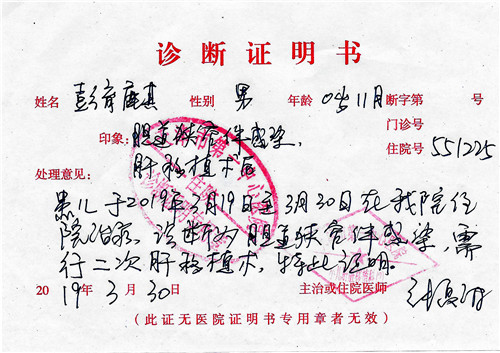 诊断证明书
姓名 彭 麒 性别 男 年龄 0岁11月 断字第 号
门诊号
印象：胆道狭窄伴感染， 住院号 551225
肝移植术后
处理意见：
患儿于2019年3月19日至3月30日在我院住
院治疗。诊断为胆道狭窄伴感染，需
行二次肝移植术，特此证明。
2019年3月30日 主治或住院医师
（此证无医院证明书专用章者无效）